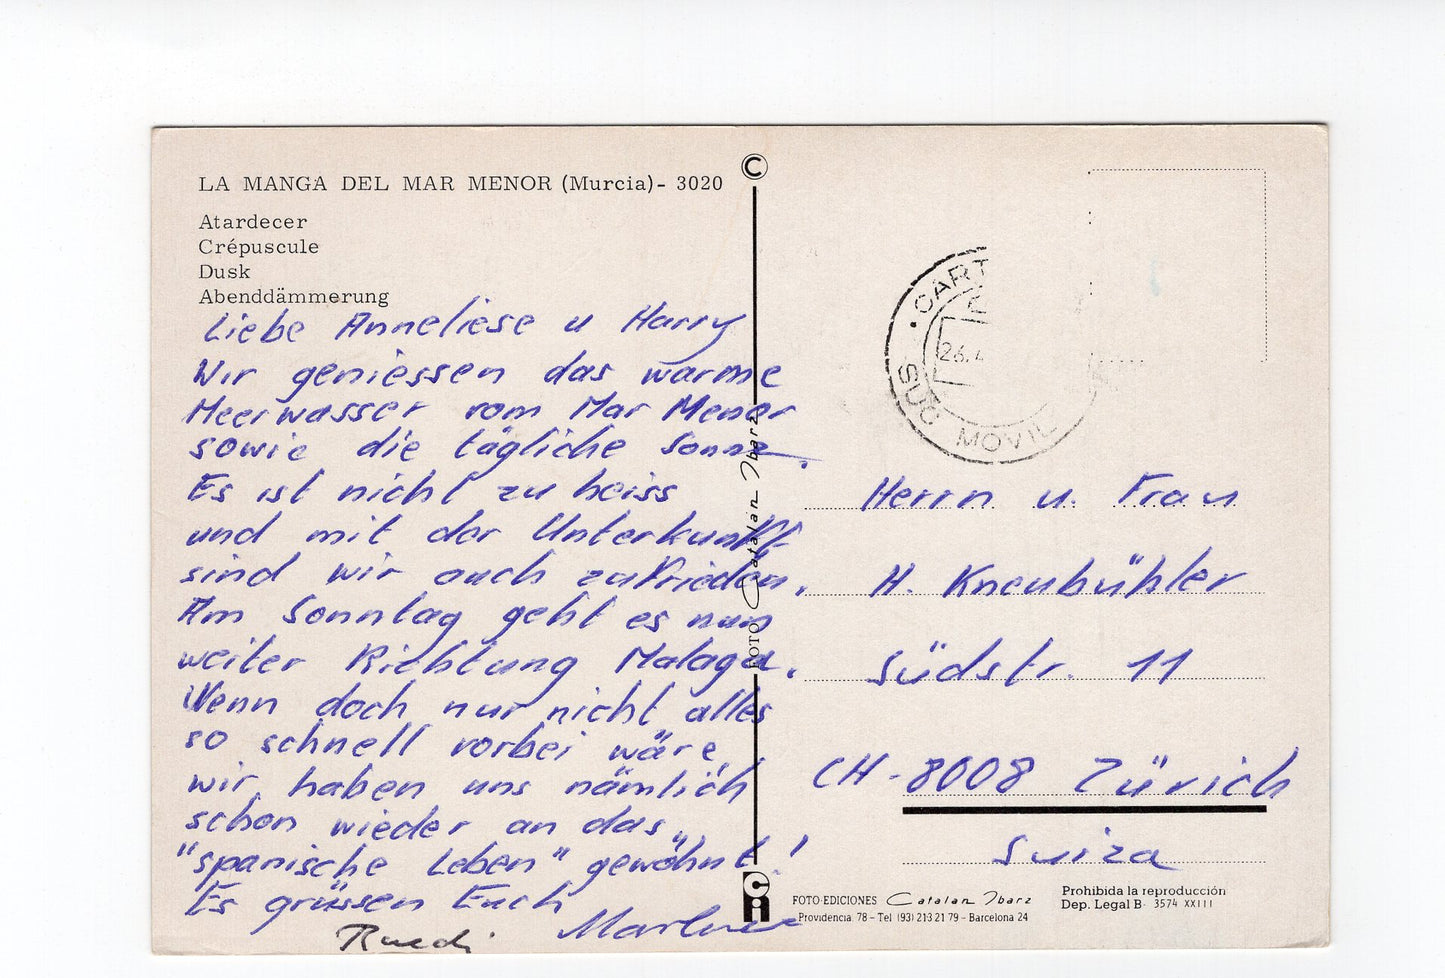 LA MANGA DEL MAR MENOR (Murcia) - 3020
Atardecer
Crépuscule
Dusk
Abenddämmerung
Liebe Anneliese u Harry
Wir geniessen das warme
Meerwasser vom Mar Menor
sowie die tägliche Sonne.
Es ist nicht zu heiss
und mit der Unterkunft
sind wir auch zufrieden.
Am Sonntag geht es nun
weiter Richtung Malaga.
Wenn doch nur nicht alles
so schnell vorbei wäre,
wir haben uns nämlich
schon wieder an das
"spanische Leben" gewöhnt!
Es grüssen Euch
Ruedi
©
FOTO Catalan Ibarz
CART
26.4
SUC MOVIL
Herrn u. Frau
H. Kneubühler
Südstr. 11
CH-8008 Zürich
Suiza
FOTO-EDICIONES Catalan Ibarz
Providencia, 78 - Tel (93) 213 21 79 - Barcelona 24
Prohibida la reproducción
Dep. Legal B- 3574 XXIII